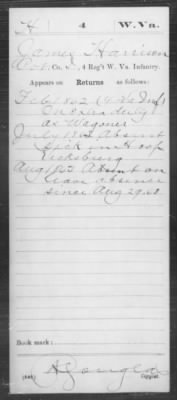 H 4 W. Va.
James Harrison
Co. , 4 Reg't W. Va. Infantry.
Appears on Returns as follows:
Feb 1862 (4 Va Inf)
On extra duty
as Wagoner
July 1863 Absent
sick in Hosp
Vicksburg
Aug 1863 Absent on
leave absence
since Aug 29.63
Book mark:
(546) Copyist.